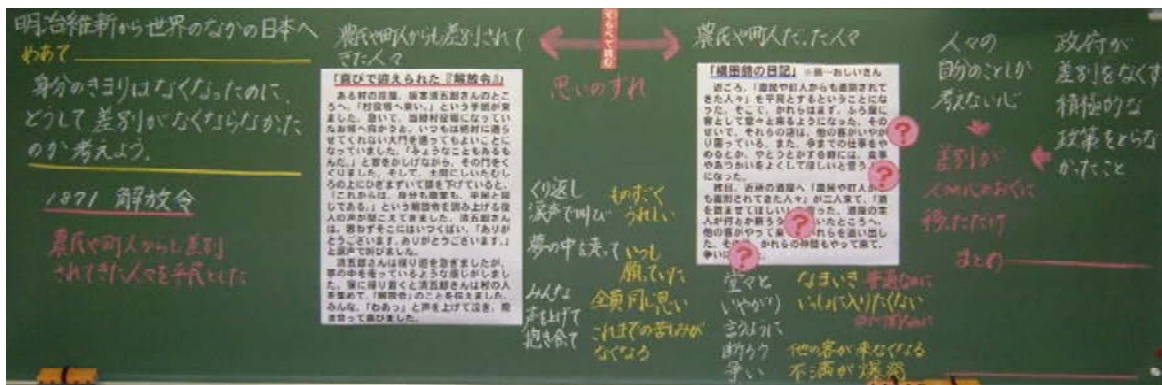 明治維新から世界のなかの日本へ
めあて
身分のきまりはなくなったのに、
どうして差別がなくならなかった
のか考えよう。
1871 解放令
農民や町人からも差別
されてきた人々を平民とした
農民や町人からも差別されて
きた人々
「喜びで迎えられた『解放令』」
ある村の段層、坂本清五郎さんのとこ
ろへ、「村役場へ来い。」という手紙が来
ました。急いで、当時村役場になってい
たお城へ向かうと、いつもは絶対に通ら
せてくれない大門を通ってもよいことに
なっていました。「みょうなこともあるも
んだ。」と首をかしげながら、その門をく
ぐりました。そして、土間にしいたむし
ろの上にひざまずいて頭を下げていると、
「これからは、身分も職業も、平民と同
じである。」という解放令を読み上げる役
人の声が聞こえてきました。清五郎さん
は、思わずそこにはいつくばい、「ありが
とうございます。ありがとうございます。」
と涙声で叫びました。
清五郎さんは帰り道を急ぎましたが、
夢の中を走っているような感じがしまし
た。家に帰り着くと清五郎さんは村の人
を集めて、「解放令」のことを伝えました。
みんな、「わあっ」と声を上げて泣き、抱
き合って喜びました。
くり返し
涙声で叫び
夢の中を走って
みんな
声を上げて
抱き合って
ものすごく
うれしい
いつも
願っていた
全員同じ思い
これまでの苦しみが
なくなる
くらべて読む
思いのずれ
農民や町人だった人々
「横田爺の日記」 ※爺…おじいさん
近ごろ、「農民や町人からも差別されて
きた人々」を平民とするということにな
った。そこで、かれらはまず、ふろ屋に
客として堂々と来るようになった。その
せいで、それらの店は、他の客がいやが
り困っている。また、今までの仕事をや
になった。
昨日、近所の酒屋へ「農民や町人から
も差別されてきた人々」が二人来て、「酒
を飲ませてほしい
他の客がやって来て、かれらを追い出し
かれらの仲間もやって来て、
?
?
?
?
堂々と
いやがり
言うように
断ろう
争い
なまいき
普通なのに
いっしょに入りたくない
他の客が来なくなる
不満が爆発
人々の
自分のことしか
考えない心
差別が
人の心のおくに
移っただけ
政府が
差別をなくす
積極的な
政策をとらな
かったこと
まとめ